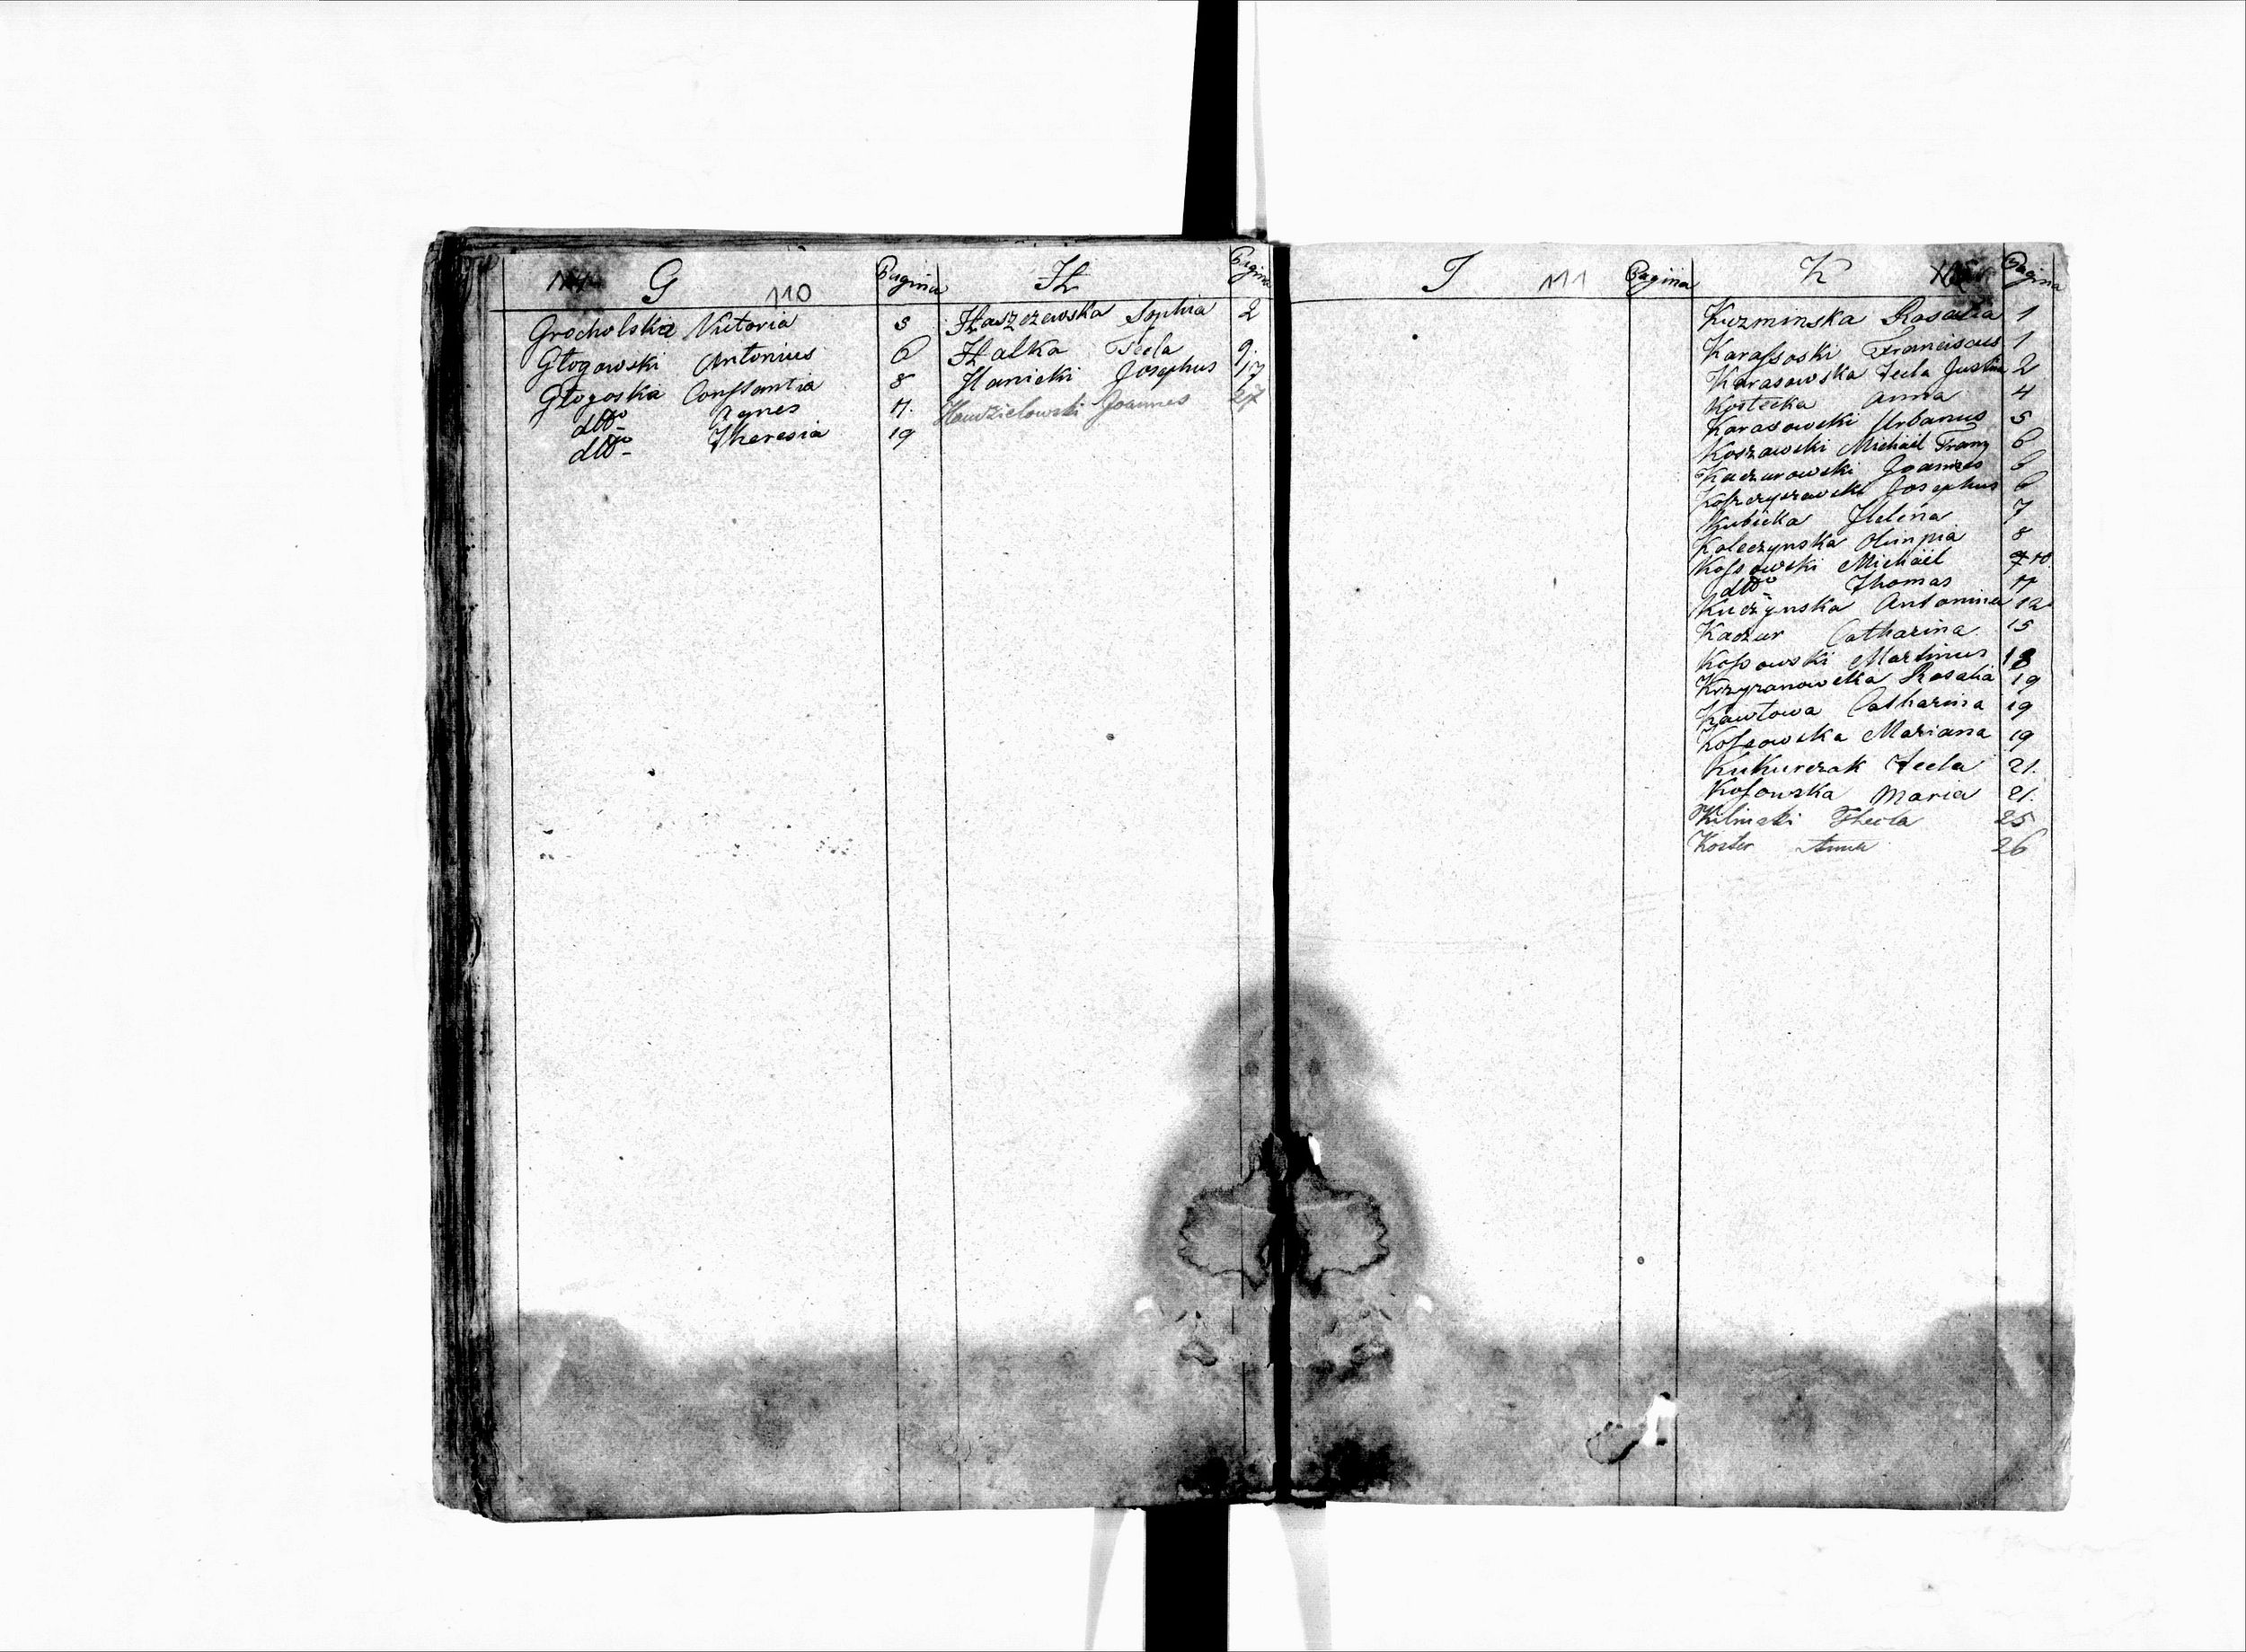 G 110 Pagina
Grocholska Victoria 5
Głogowski Antonius 6
Głogoska Constantia 8
dtto Agnes 11.
dtto Theresia 19
H Pagina
Haszczewska Sophia 2
Halka Tecla 9.
Hanicki Josephus 17
Joannes 27
I 111 Pagina
K Pagina
Kuzminska Rosalia 1
Karassoski Franciscus 1
Karasowska Tecla Justina 2
Kostecka Anna 4
Karasowski Urbanus 5
Koszawski Michaił Franz 6
Kaczurowski Joannes 6
Josephus 6
Kubicka Helena 7
Koleczynska Olimpia 8
Kossowski Michäil 10
dtto Thomas 11
Kuczynska Antonina 12
Kaczur Catharina 15
Kossowski Martinus 18
Krzyzanowska Rosalia 19
Kawtowa Catharina 19
Kossowska Mariana 19
Kukurczak Tecla 21.
Kosowska Maria 21.
Thecla 25
Koster Anna 26